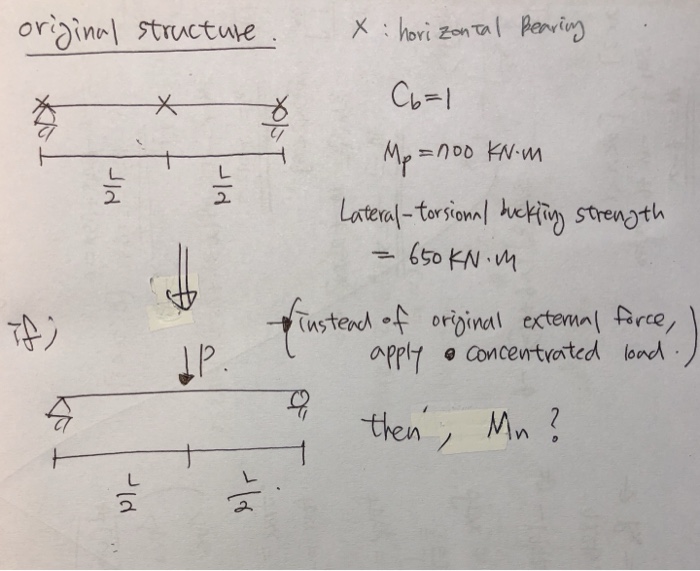 original structure.
X : horizontal Bearing
Cb=1
Mp = 700 KN·m
L/2
L/2
Lateral-torsional buckling strength
= 650 KN·M
if;
(instead of original external force,
apply a concentrated load.)
P.
then, Mn ?
L/2
L/2.